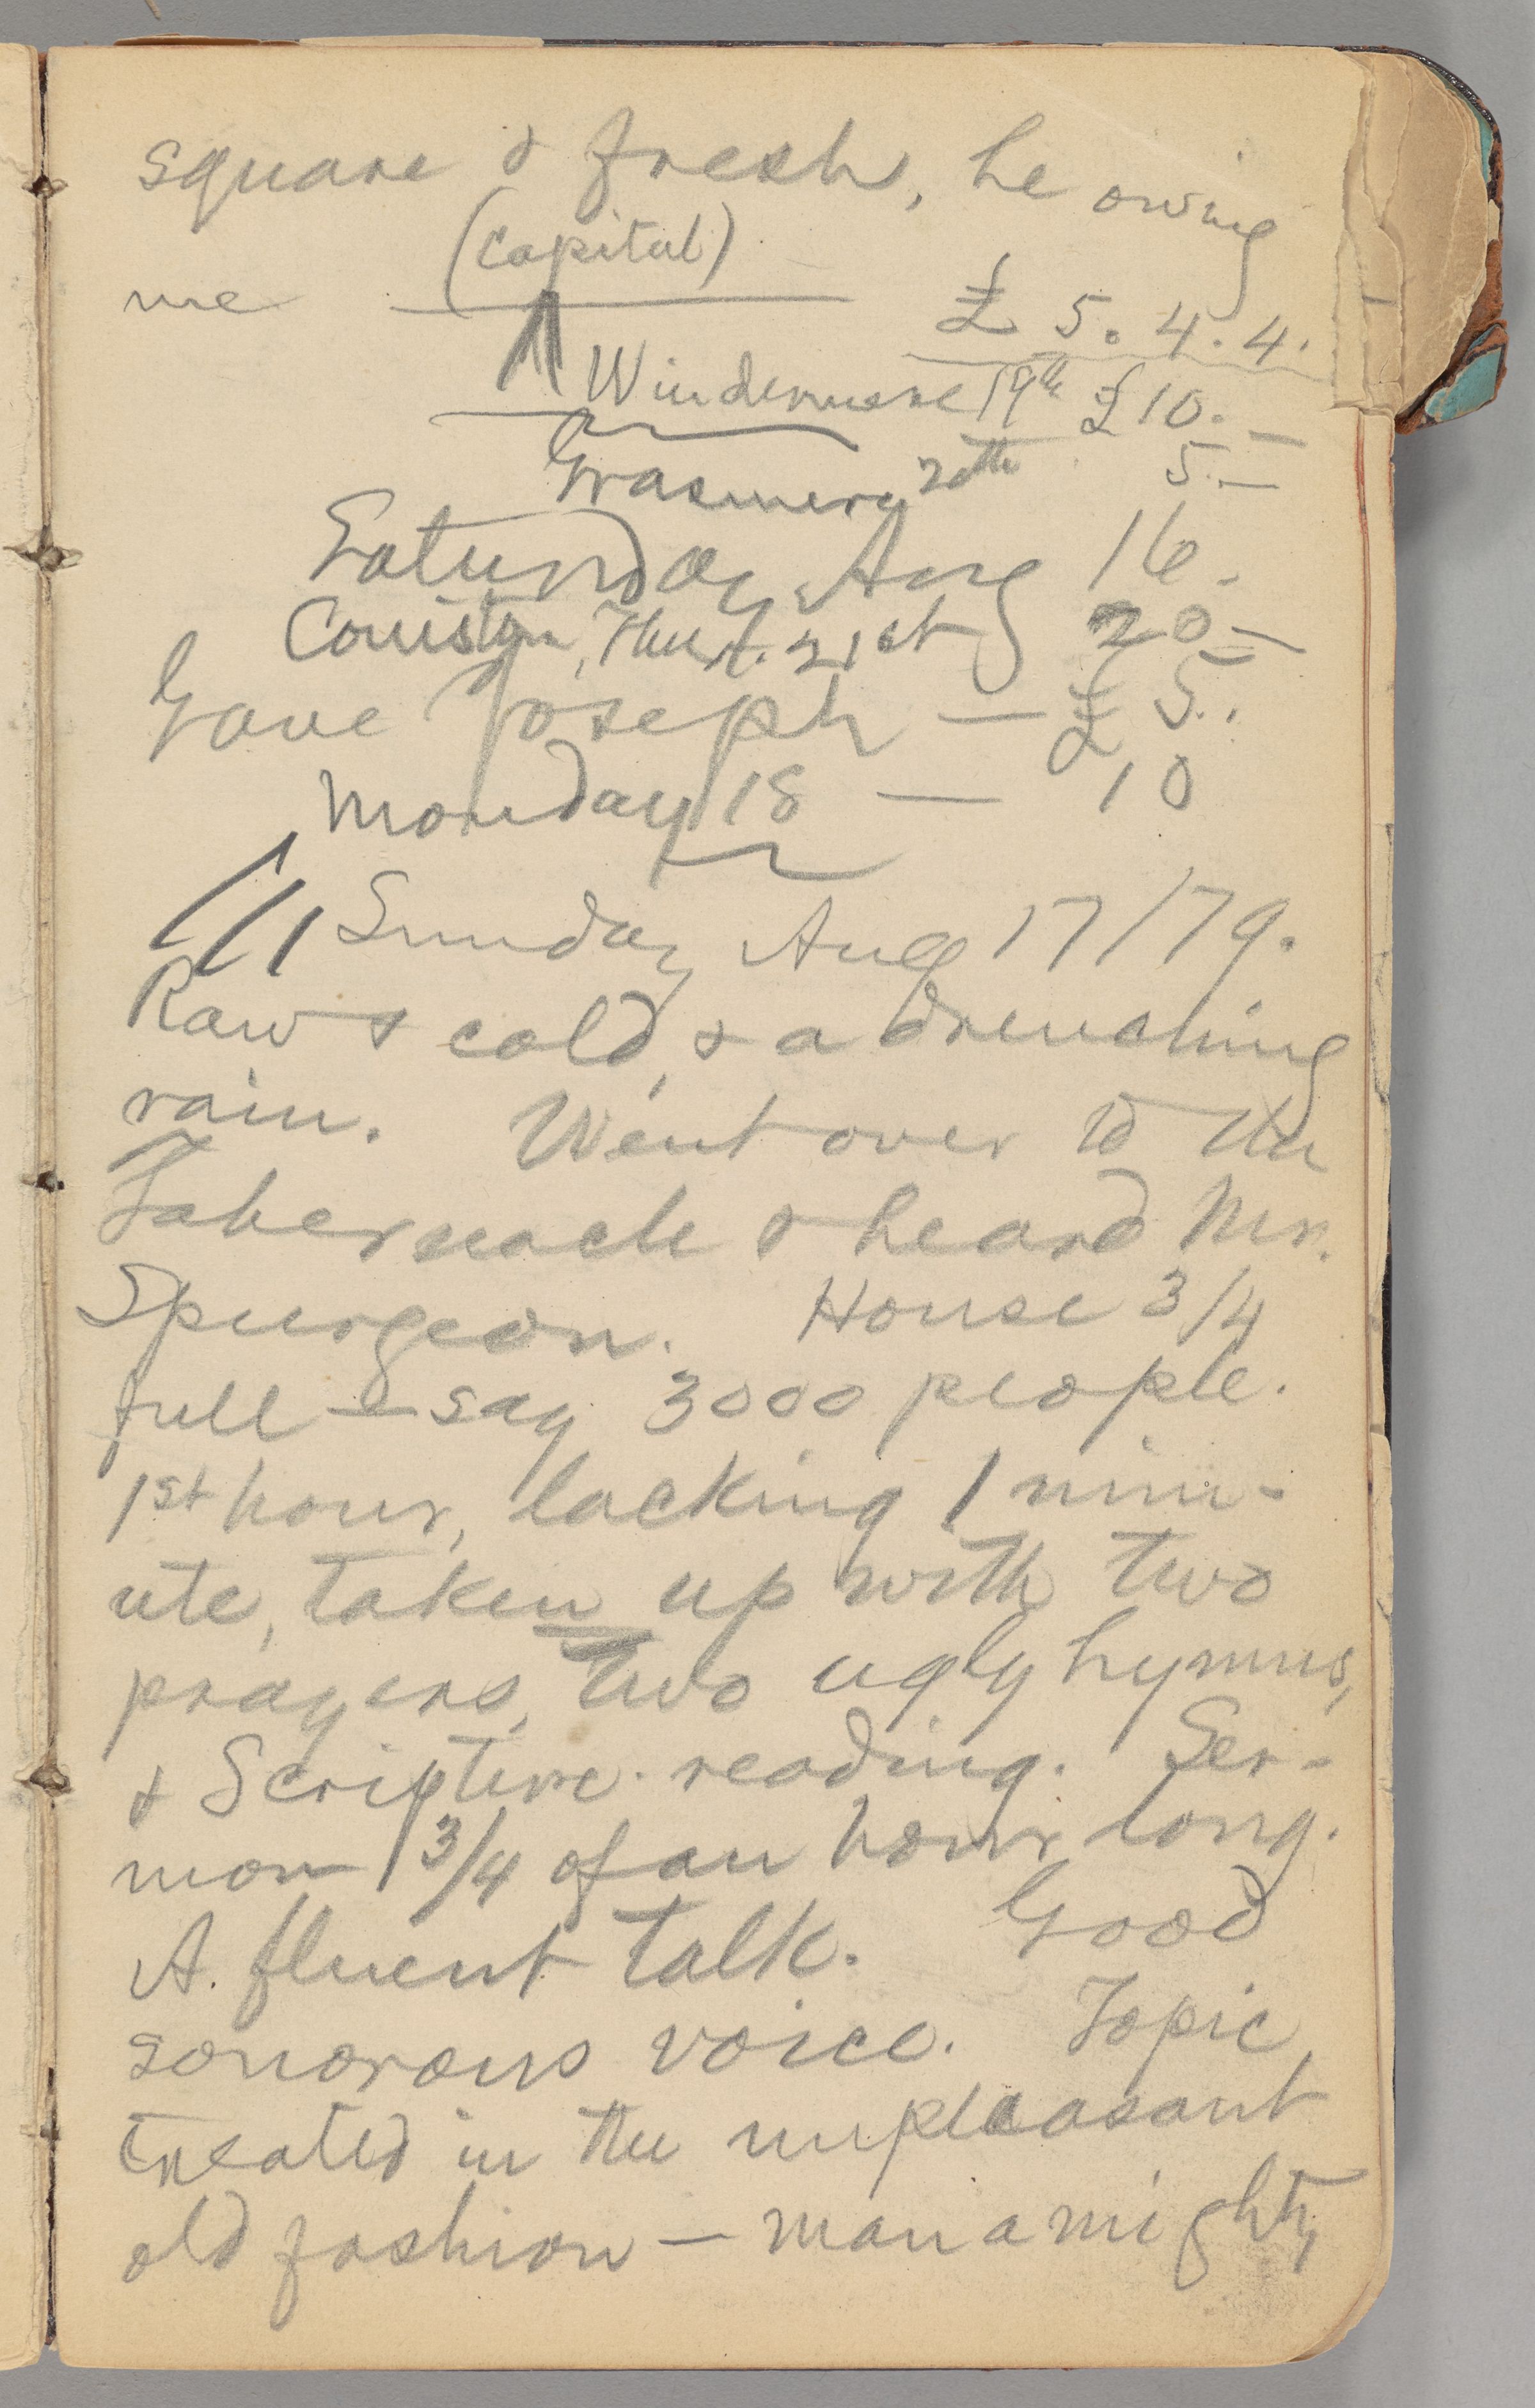 square & fresh, he owing
(capital)
me £ 5. 4. 4.
Windermere 19th £10. —
Grasmere 20th 5. —
Saturday, Aug 16.
Coniston, Thurs. 21st 20 —
Gave Joseph — £ 5..
Monday 18 — 10
Sunday Aug 17/79.
Raw & cold, & a drenching
rain. Went over to the
Tabernacle & heard Mr.
Spurgeon. House 3/4
full — say 3000 people.
1st hour, lacking 1 min-
ute, taken up with two
prayers, two ugly hymns,
& Scripture-reading. Ser-
mon 3/4 of an hour long.
A fluent talk. Good
sonorous voice. Topic
treated in the unpleasant
old fashion — man a mighty